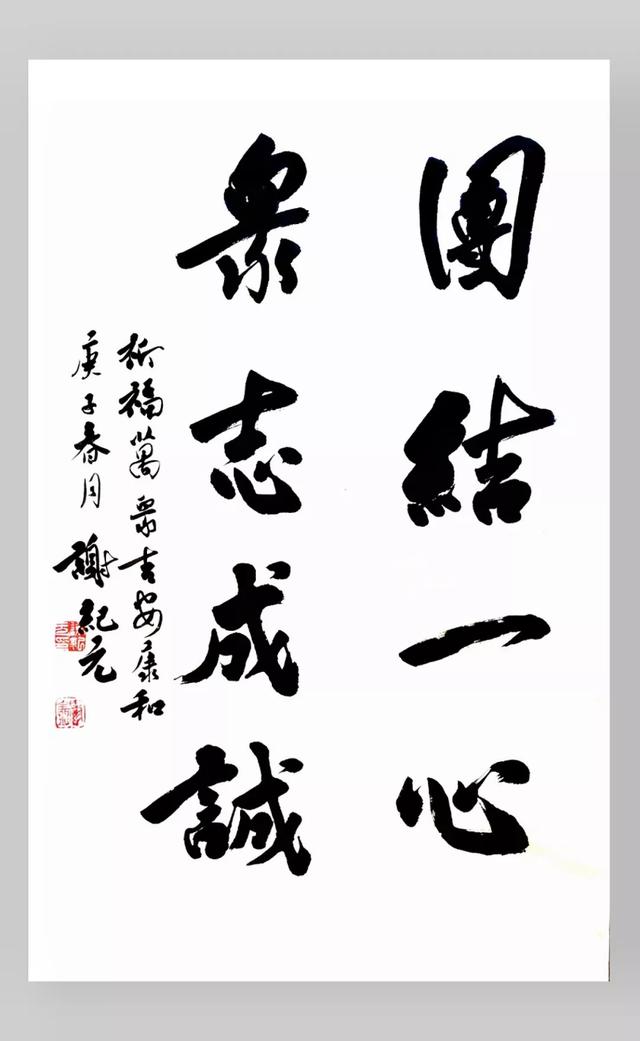 團結一心
衆志成誠
祈福萬衆吉安康和
庚子春月 謝紀元